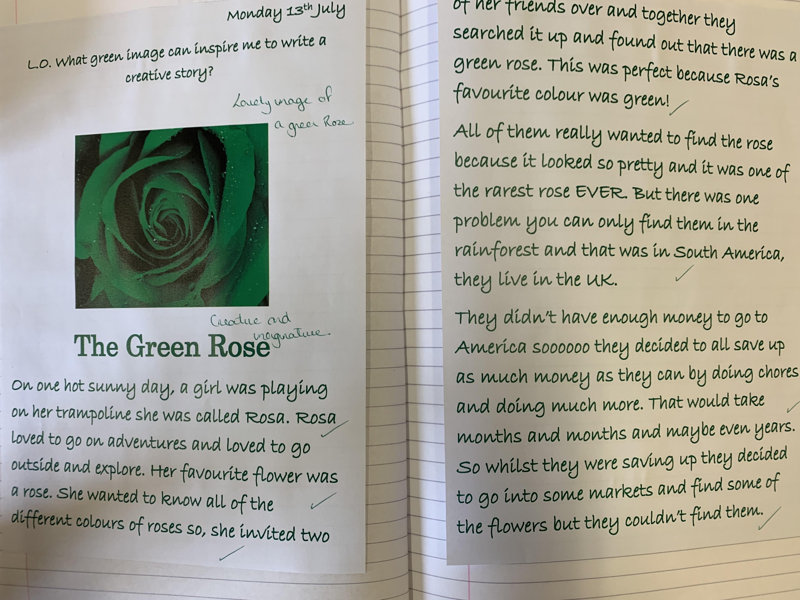 Monday 13th July
L.O. What green image can inspire me to write a
creative story?
Lovely image of
a green Rose.
Creative and
The Green Rose
On one hot sunny day, a girl was playing
on her trampoline she was called Rosa. Rosa
loved to go on adventures and loved to go
outside and explore. Her favourite flower was
a rose. She wanted to know all of the
different colours of roses so, she invited two
of her friends over and together they
searched it up and found out that there was a
green rose. This was perfect because Rosa's
favourite colour was green!
All of them really wanted to find the rose
because it looked so pretty and it was one of
the rarest rose EVER. But there was one
problem you can only find them in the
rainforest and that was in South America,
they live in the UK.
They didn't have enough money to go to
America soooooo they decided to all save up
as much money as they can by doing chores
and doing much more. That would take
months and months and maybe even years.
So whilst they were saving up they decided
to go into some markets and find some of
the flowers but they couldn't find them.